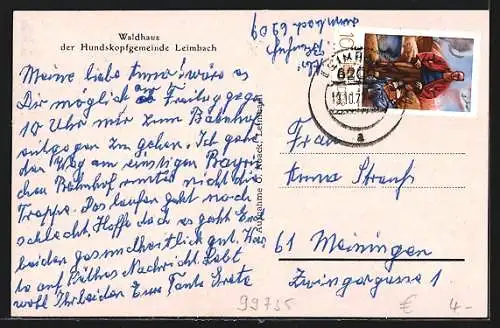 Waldhaus
der Hundskopfgemeinde Leimbach
Meine liebe Anna! wäre es
Dir möglich am Freitag gegen
10 Uhr mir zum Bahnhof
entgegen zu gehen. Ich geh
den Weg am einstigen Bayri-
schen Bahnhof runter nicht die
Treppe. Das laufen geht noch
schlecht. Hoffe doch es geht Euch
beiden gesundheitlich gut.
to auf Nachricht. Lebt
wohl Ihr beiden Eure Tante Grete
6209
LEIMBA
620
10
a
Aufnahme O. Noack, Leimbach
Frau
Anna Strauß
61 Meiningen
Zwingergasse 1
99735
€ 4-